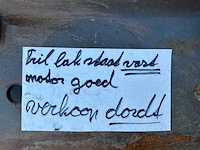 tril lak staat vast
motor goed
verkoop dordt